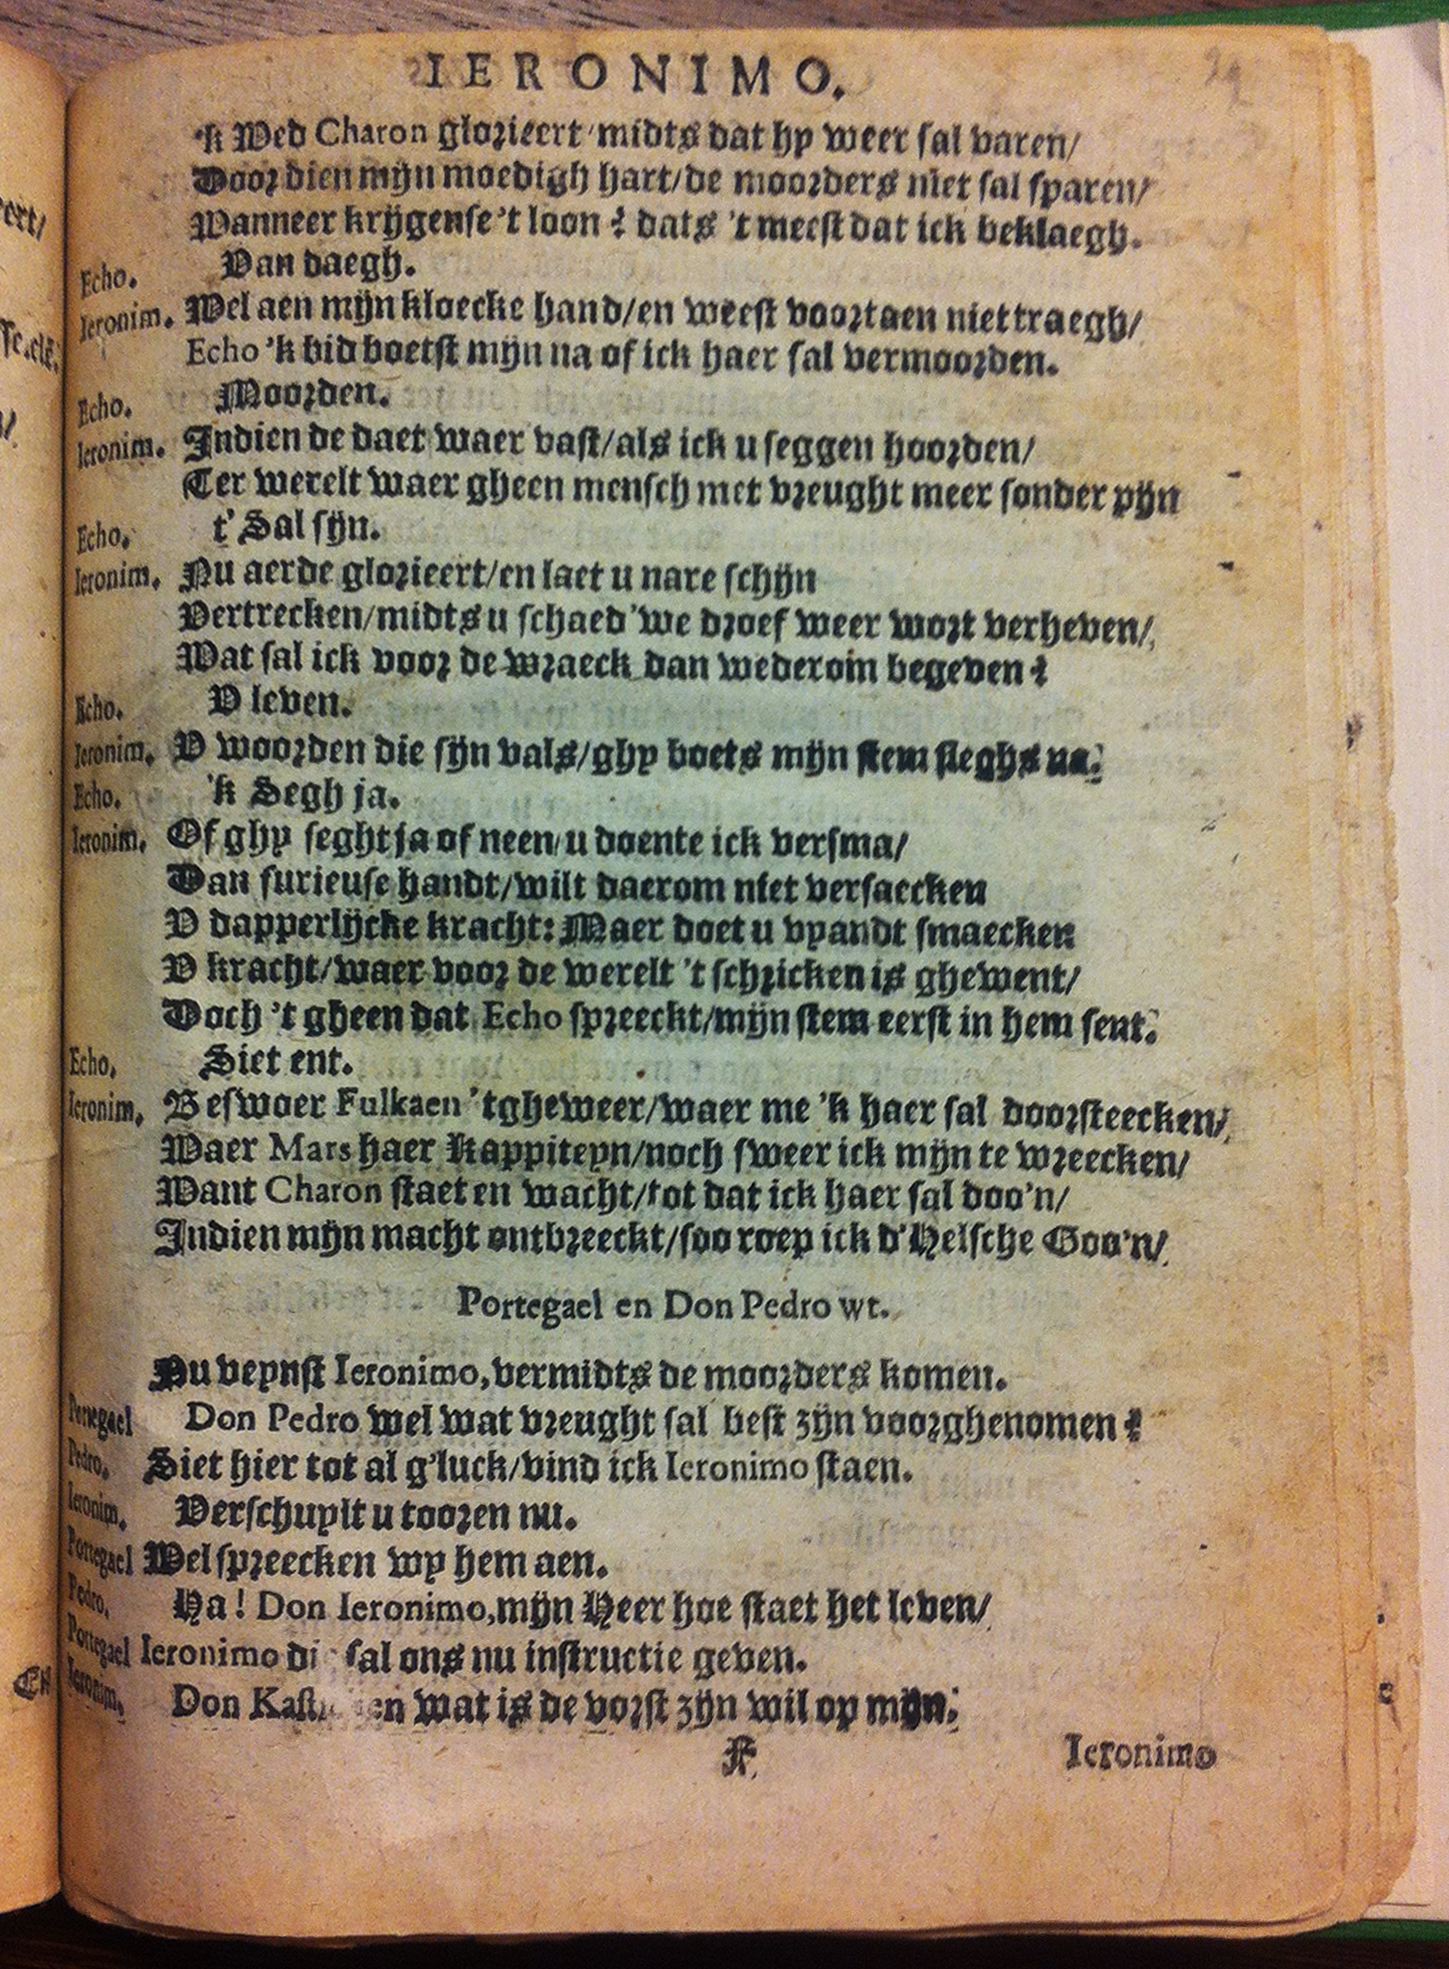 IERONIMO.
'k Wed Charon glorieert/midts dat hy weer sal varen/
Door dien mijn moedigh hart/de moorders niet sal sparen/
Wanneer krijgense 't loon? dats 't meest dat ick beklaegh.
Echo. Van daegh.
Ieronim. Wel aen mijn kloecke hand/en weest voortaen niet traegh/
Echo 'k bid boetst mijn na of ick haer sal vermoorden.
Echo. Moorden.
Ieronim. Indien de daet waer vast/als ick u seggen hoorden/
Ter werelt waer gheen mensch met vreught meer sonder pijn
Echo. t' Sal sijn.
Ieronim. Nu aerde glorieert/en laet u nare schijn
Vertrecken/midts u schaed'we droef weer wort verheven/
Wat sal ick voor de wraeck dan wederom begeven?
Echo. V leven.
Ieronim. V woorden die sijn vals/ghy boets mijn stem sleghs na.
Echo. 'k Segh ja.
Ieronim. Of ghy seght ja of neen/u doente ick versma/
Dan furieuse handt/wilt daerom niet versaecken
V dapperlijcke kracht: Maer doet u vyandt smaecken
V kracht/waer voor de werelt 't schricken is ghewent/
Doch 't gheen dat Echo spreeckt/mijn stem eerst in hem sent.
Echo. Siet ent.
Ieronim. Beswoer Fulkaen 'tgheweer/waer me 'k haer sal doorsteecken/
Waer Mars haer Kappiteyn/noch sweer ick mijn te wreecken/
Want Charon staet en wacht/tot dat ick haer sal doo'n/
Indien mijn macht ontbreeckt/soo roep ick d'Helsche Goo'n/
Portegael en Don Pedro wt.
Nu veynst Ieronimo, vermidts de moorders komen.
Portegael Don Pedro wel wat vreught sal best zijn voorghenomen?
Pedro. Siet hier tot al g'luck/vind ick Ieronimo staen.
Ieronim. Verschuylt u tooren nu.
Portegael Wel spreecken wy hem aen.
Pedro. Ha! Don Ieronimo, mijn Heer hoe staet het leven/
Portegael Ieronimo di sal ons nu instructie geven.
Ieronim. Don wat is de vorst zijn wil op mijn.
K
Ieronimo